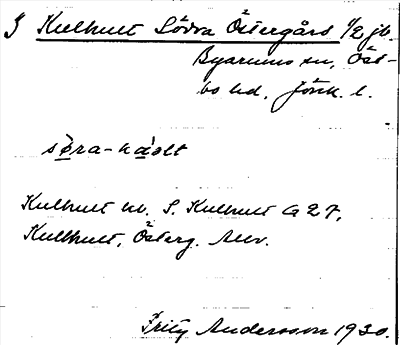 J Kulhult Södra Östergård 1/2 jb.
Byarums sn, Öst-
bo hd, Jönk. l.
Kulhult kb. S. Kulhult G 27,
Kullhult, Österg. Alm.
Frity Andersson 1930.